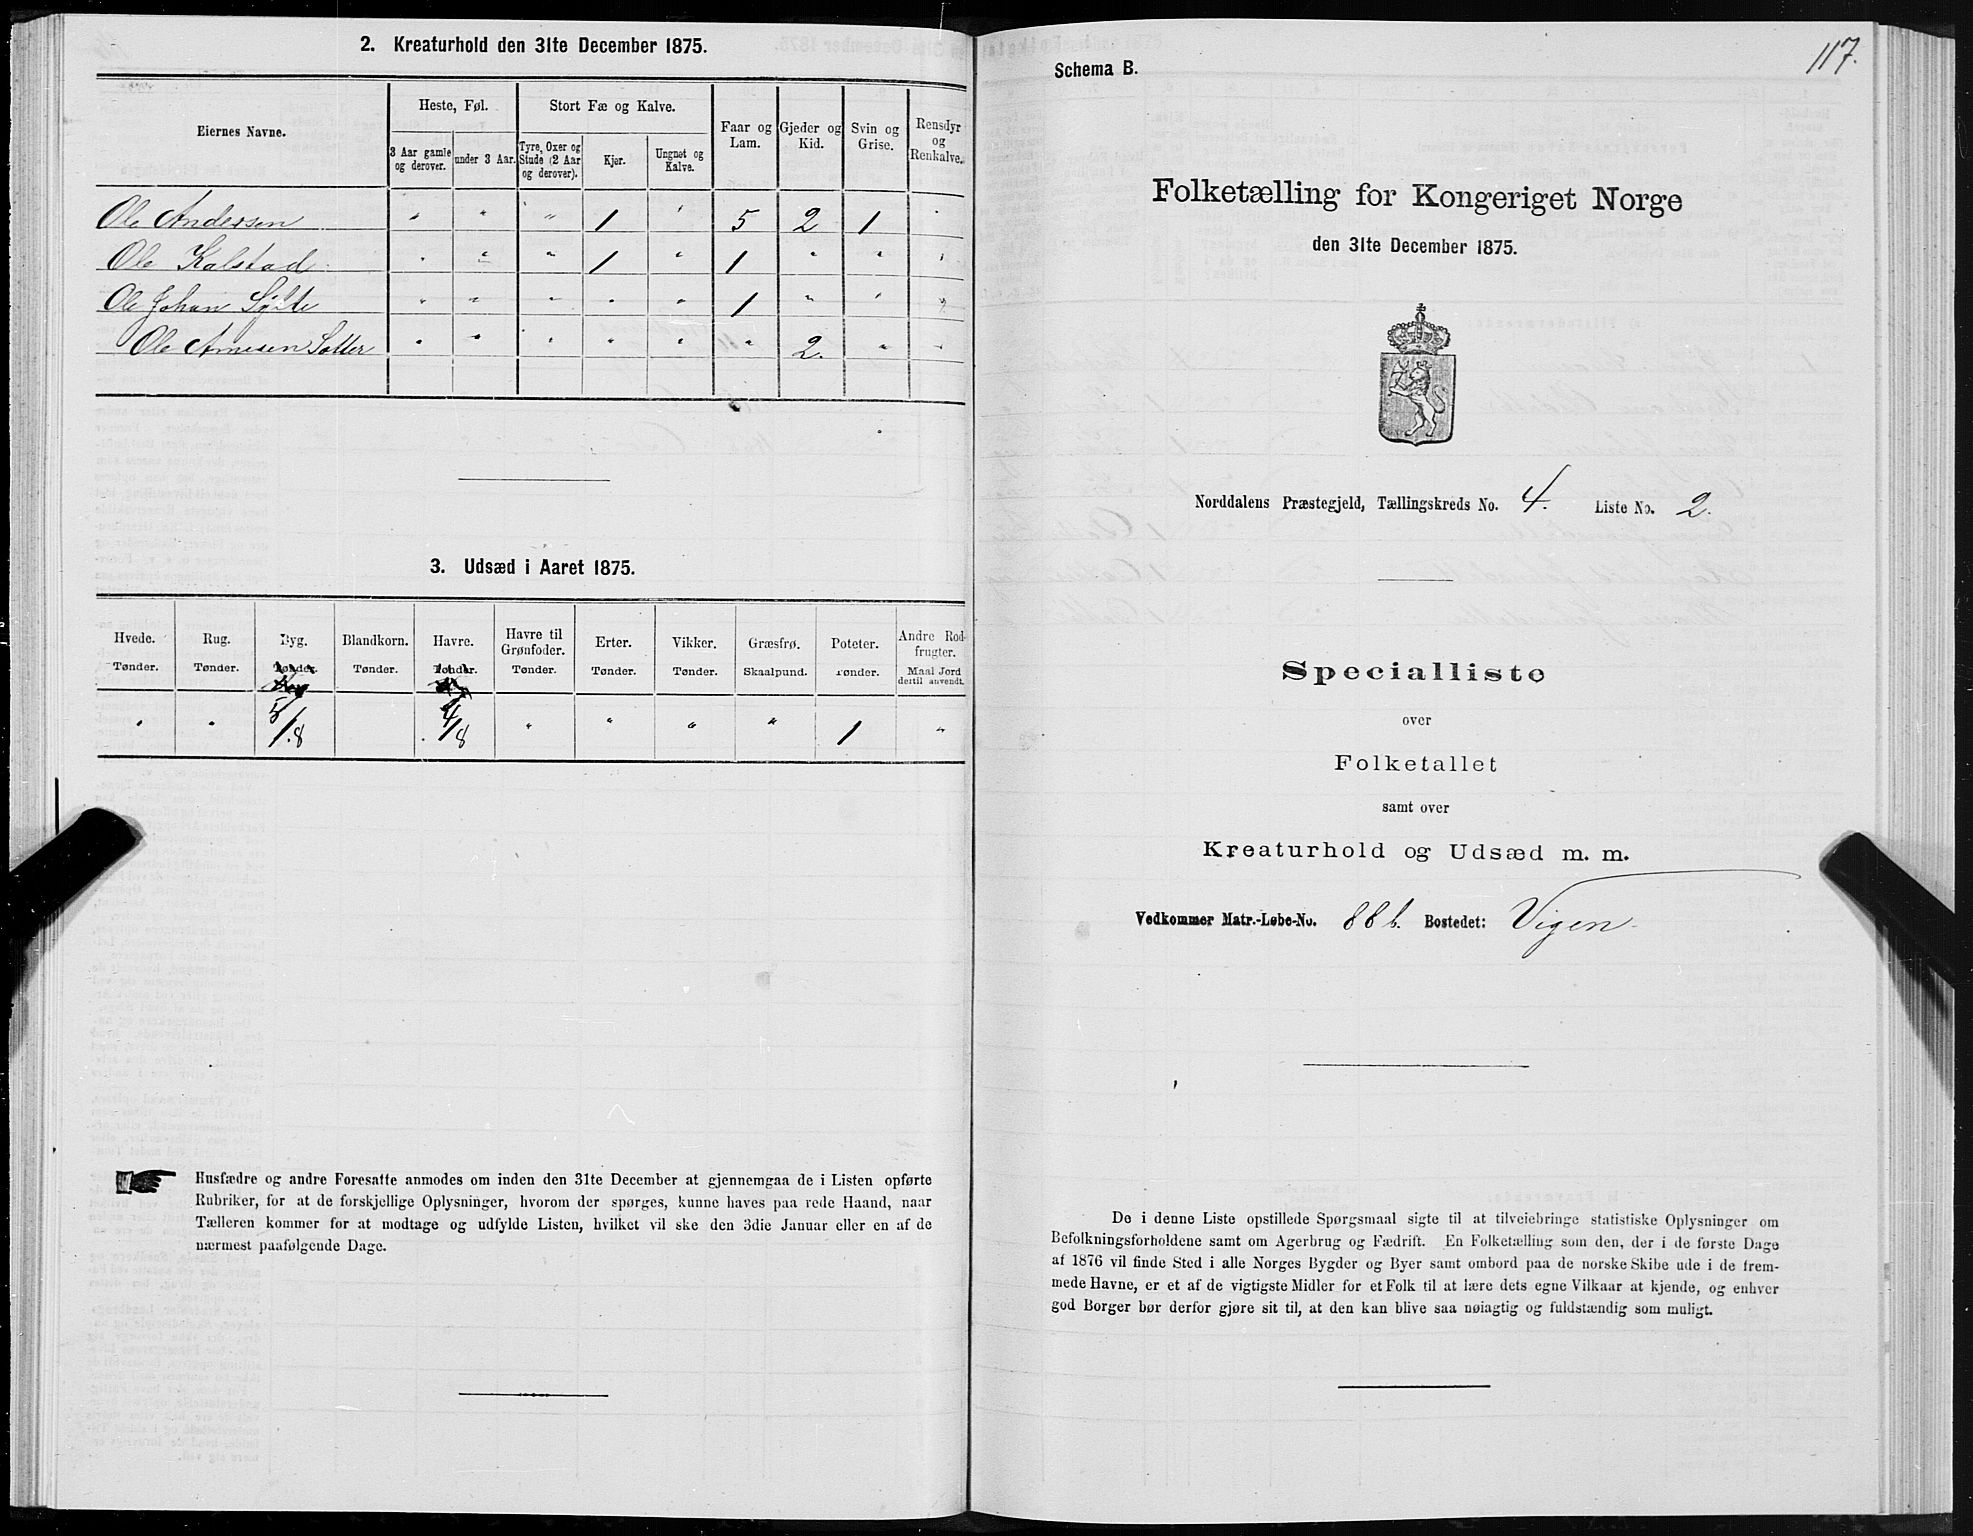 2. Kreaturhold den 31te December 1875.
Eiernes Navne.
Heste, Føl.
Stort Fæ og Kalve.
Faar og Lam.
Gjeder og Kid.
Svin og Grise.
Rensdyr og Renkalve.
3 Aar gamle og derover.
under 3 Aar.
Tyre, Oxer og Stude (2 Aar og derover).
Kjør.
Ungnøt og Kalve.
Ole Andersen " " " 1 " 5 2 1 "
Ole Kalstad " " " 1 " 1 " " "
Ole Johan Sylte " " " " " 1 " " "
Ole Arnesen " " " " " " 2. " "
3. Udsæd i Aaret 1875.
Hvede. Rug. Byg. Blandkorn. Havre. Havre til Grønfoder. Erter. Vikker. Græsfrø. Poteter. Andre Rodfrugter.
Tønder. Tønder. Tønder. Tønder. Tønder. Tønder. Tønder. Tønder. Skaalpund. Tønder. Maal Jord dertil anvendt.
" " 5/8 4/8 " " " " 1 "
Husfædre og andre Foresatte anmodes om inden den 31te December at gjennemgaa de i Listen opførte
Rubriker, for at de forskjellige Oplysninger, hvorom der spørges, kunne haves paa rede Haand, naar
Tælleren kommer for at modtage og udfylde Listen, hvilket vil ske den 3die Januar eller en af de
nærmest paafølgende Dage.
117.
Schema B.
Folketælling for Kongeriget Norge
den 31te December 1875.
Norddalens Præstegjeld, Tællingskreds No. 4. Liste No. 2.
Specialliste
over
Folketallet
samt over
Kreaturhold og Udsæd m. m.
Vedkommer Matr.-Løbe-No. 88 b. Bostedet: Vigen
De i denne Liste opstillede Spørgsmaal sigte til at tilveiebringe statistiske Oplysninger om
Befolkningsforholdene samt om Agerbrug og Fædrift. En Folketælling som den, der i de første Dage
af 1876 vil finde Sted i alle Norges Bygder og Byer samt ombord paa de norske Skibe ude i de frem-
mede Havne, er et af de vigtigste Midler for et Folk til at lære dets egne Vilkaar at kjende, og enhver
god Borger bør derfor gjøre sit til, at den kan blive saa nøiagtig og fuldstændig som muligt.